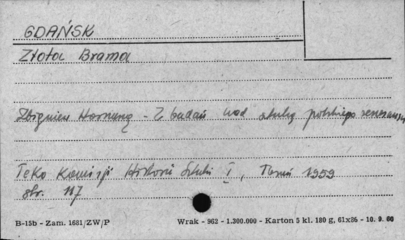 GDAŃSK
Złota Brama
Zbigniew Hornung - Z badań nad sztuką polskiego renesansu
Teka Komisji Historii Sztuki I, Toruń 1959
str. 117
B-15b - Zam. 1681/ZW/P Wrak - 963 - 1.200.000 - Karton 5 kl. 180 g, 61x86 - 10. 9. 60